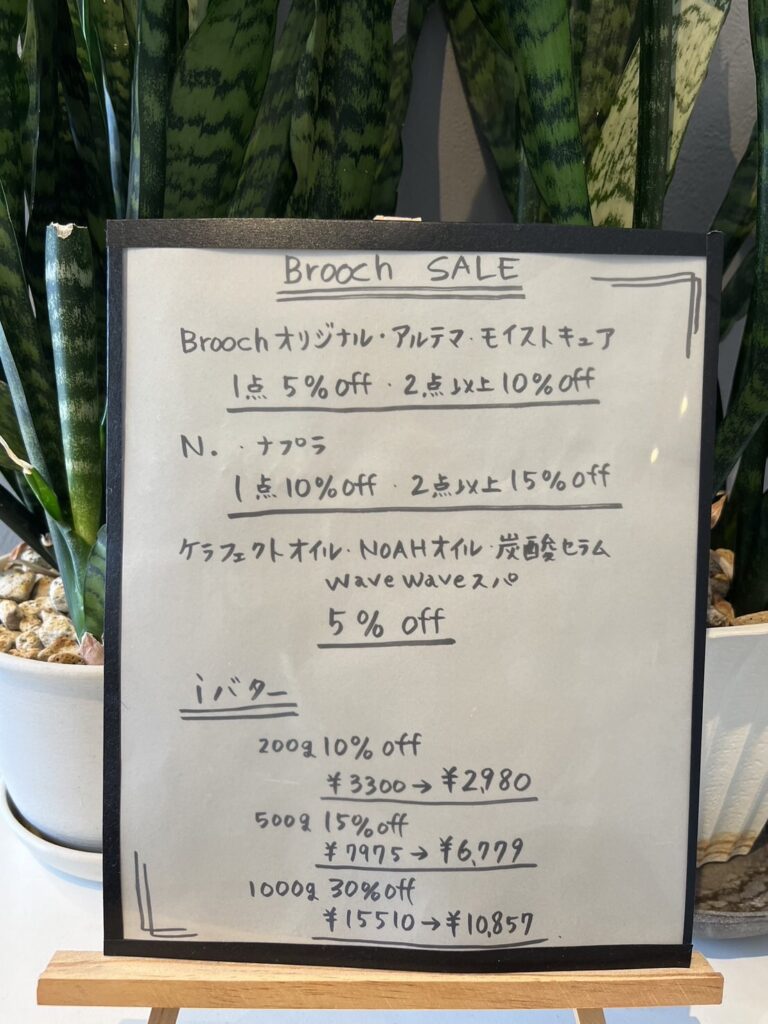 Brooch SALE
Broochオリジナル・アルテマ・モイストキュア
1点 5%off ・ 2点以上10%off
N. ・ナプラ
1点10%off ・ 2点以上15%off
ケラフェクトオイル・NOAHオイル・炭酸セラム
wavewaveスパ
5% off
iバター
200g 10% off
¥3300→¥2,980
500g 15%off
¥7975→¥6,779
1000g 30%off
¥15510→¥10,857